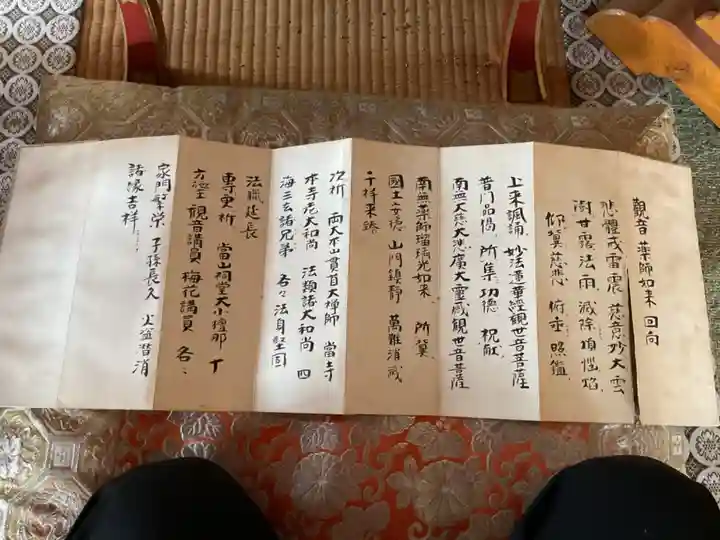 觀音 薬師如来 回向
悲體戒雷震 慈意妙大雲
澍甘露法雨 滅除煩惱焰
仰冀慈悲 俯垂照鑑
上来諷誦 妙法蓮華經觀世音菩薩
普門品偈 所集功德 祝献
南無大慈大悲廣大靈感觀世音菩薩
南無薬師瑠璃光如来 所冀
國土安穏 山門鎮静 萬難消滅
千祥来臻
次祈 両大本山貫首大禅師 當寺
本寺老大和尚 法類諸大和尚 四
海三玄諸兄弟 各々法身堅固
法職延長
専更祈 當山祠堂大小檀那 十
方施主 觀音講員 梅花講員 各々
家門繁栄 子孫長久 火盗潜消
諸縁吉祥